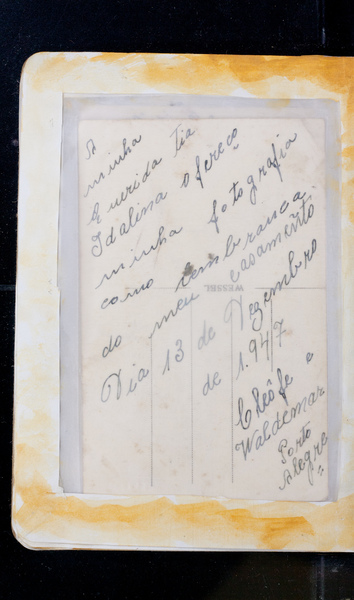 A
minha
Querida Tia
Idalina ofereço
minha fotografia
como lembranca
do meu casamento
Dia 13 de Dezembro
de 1.947
Cleôfe e
Waldemar
Porto
Alegre
WESSEL